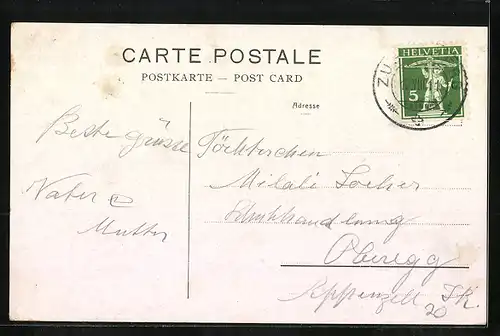 CARTE POSTALE
POSTKARTE – POST CARD
Adresse
HELVETIA
5
ZÜ
Beste Grüsse
Vater &
Mutter
Töchterchen
Milali Locher
Schuhhandlung
Oberegg
Appenzell
20